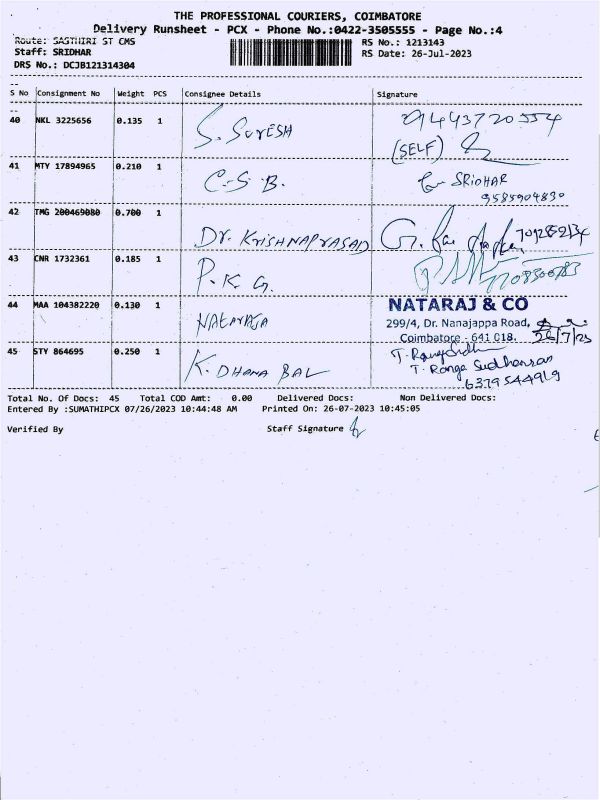 THE PROFESSIONAL COURIERS, COIMBATORE
Delivery Runsheet - PCX - Phone No.:0422-3505555 - Page No.:4
Route: SASTHIRI ST CMS
RS No.: 1213143
Staff: SRIDHAR
RS Date: 26-Jul-2023
DRS No.: DCJB121314304
S No Consignment No Weight PCS Consignee Details Signature
40 NKL 3225656 0.135 1 S. SURESH 01443720554
(SELF)
41 MTY 17894965 0.210 1 C.S.B. SRIDHAR
9585904830
42 TMG 200469080 0.700 1 Dr. KRISHNAPRASAD G.
43 CNR 1732361 0.185 1 P.K.G. 7708300783
44 MAA 104382220 0.130 1 NATARAJA NATARAJ & CO
299/4, Dr. Nanajappa Road,
Coimbatore - 641 018. 26/7/23
45 STY 864695 0.250 1 K. DHANA BAL T. Ranga Sudhansan
6379544919
Total No. Of Docs: 45 Total COD Amt: 0.00 Delivered Docs: Non Delivered Docs:
Entered By :SUMATHIPCX 07/26/2023 10:44:48 AM Printed On: 26-07-2023 10:45:05
Verified By Staff Signature